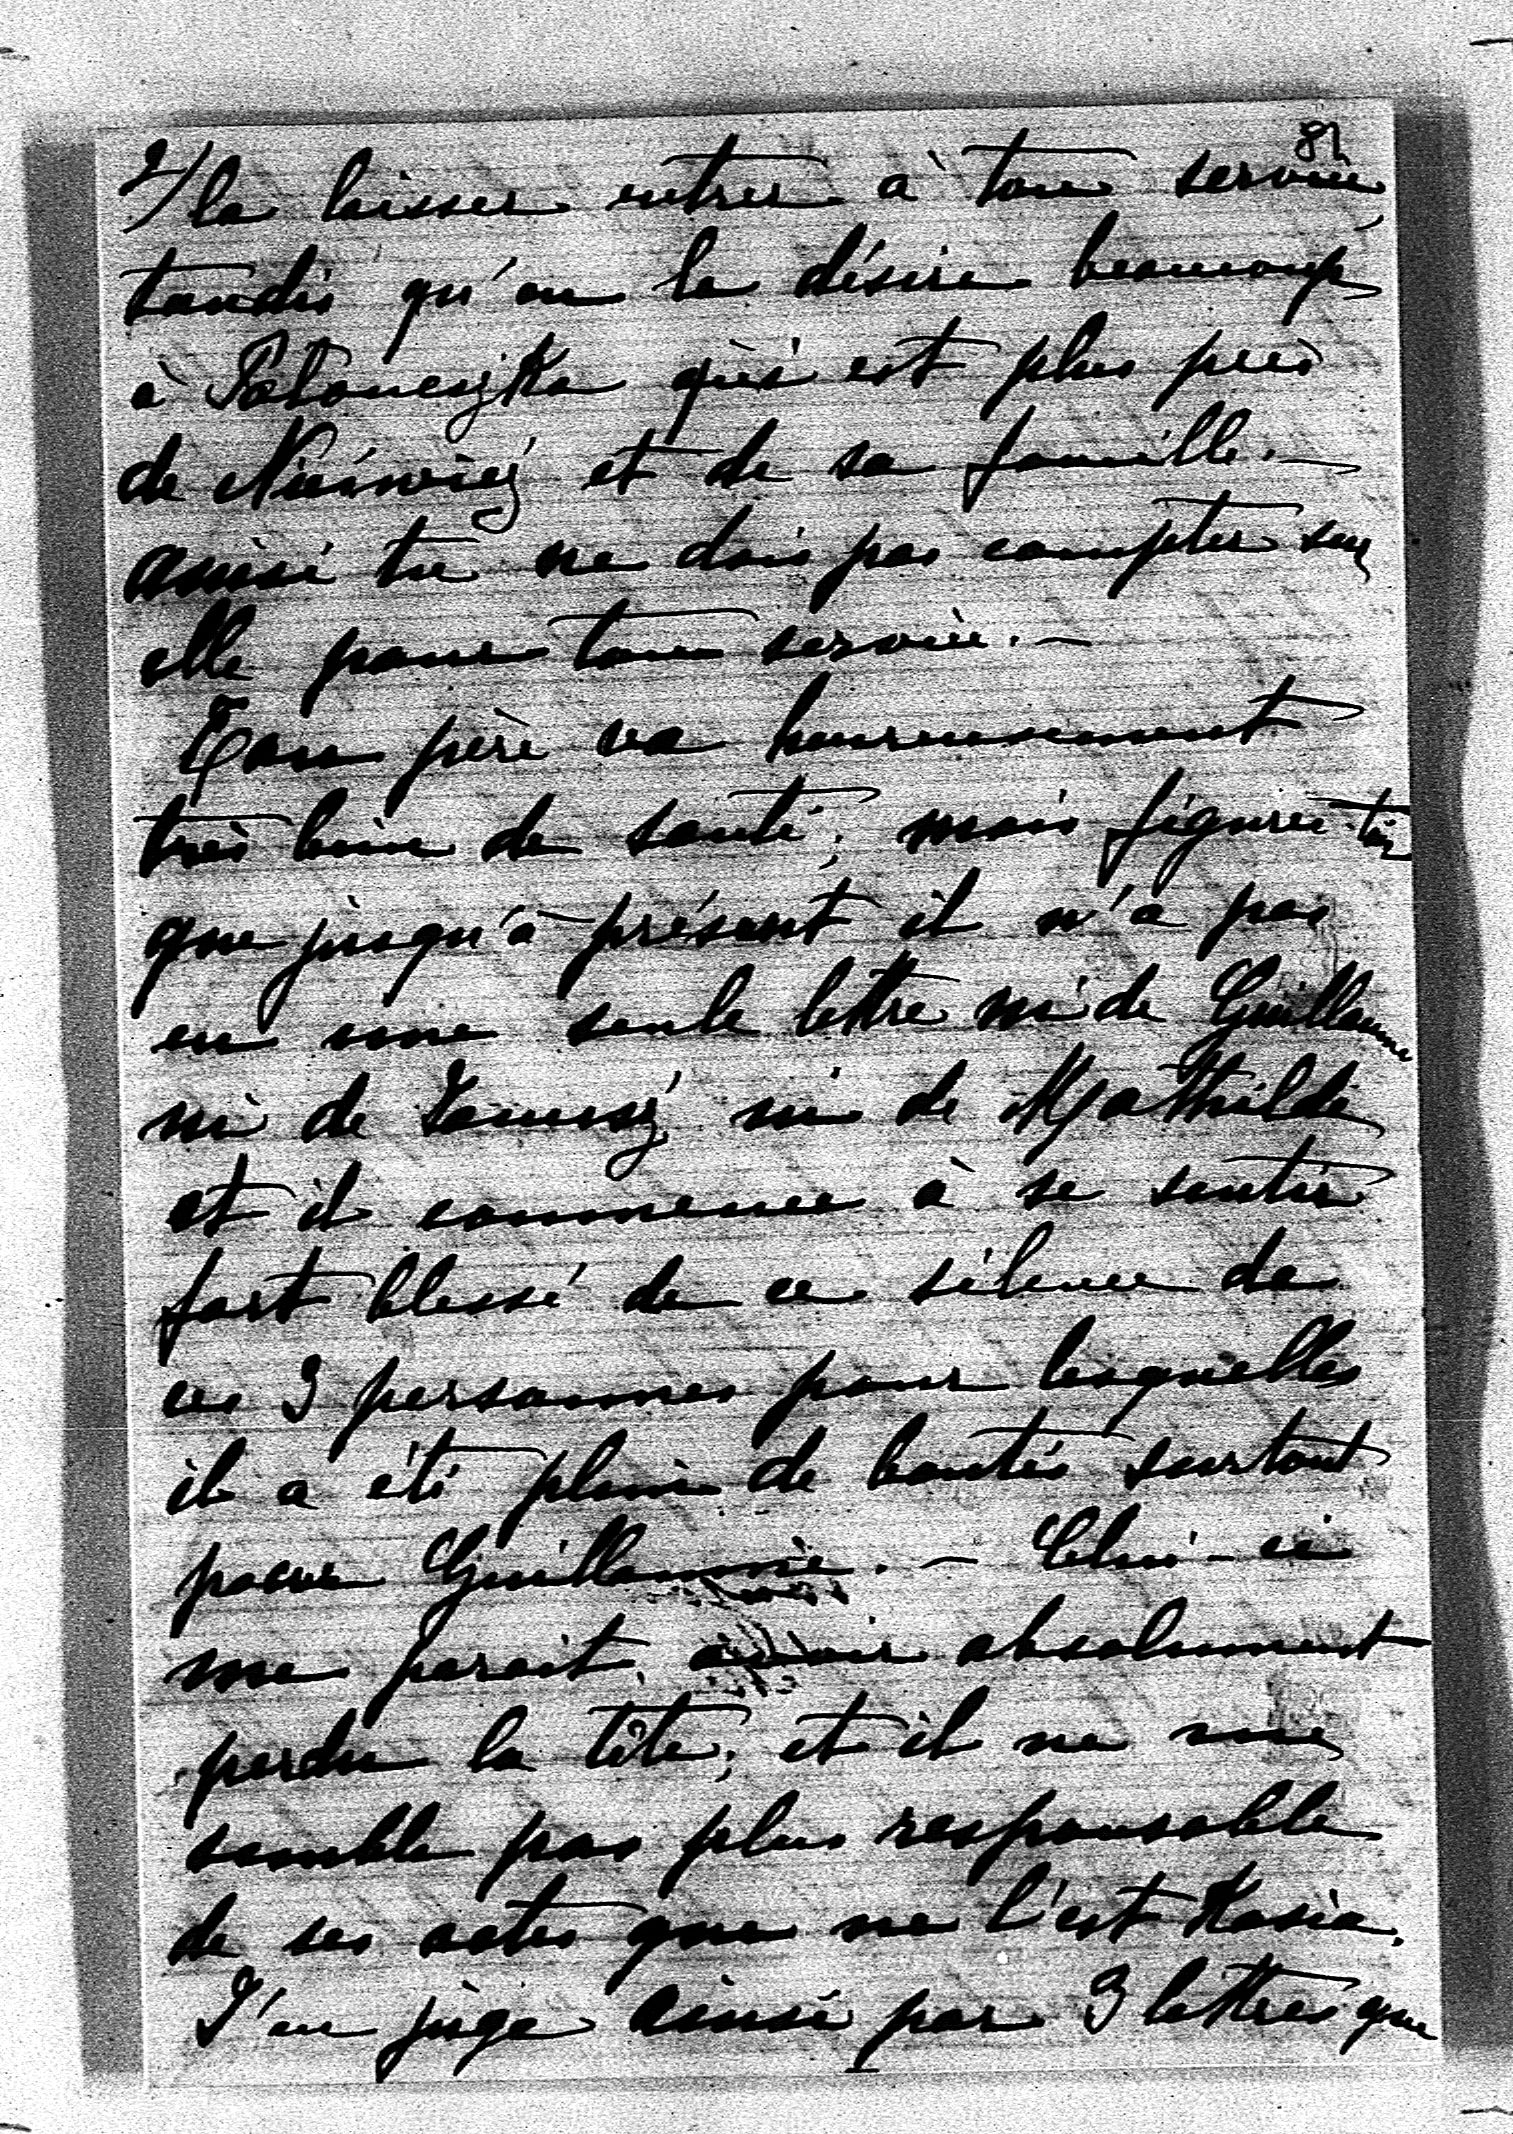 82
2/ la laisser entrer à ton service
tandis qu'on la désire beaucoup
à Potoneczka qui est plus près
de Nieśwież et de sa famille. —
ainsi tu ne dois pas compter sur
elle pour ton service. —
Ton père va heureusement
très bien de santé; mais figures-toi
que jusqu'à présent il n'a pas
eu une seule lettre ni de Guillaume
ni de Janusz, ni de Mathilde
et il commence à se sentir
fort blessé de ce silence de
ces 3 personnes pour lesquelles
il a été plein de bontés surtout
pour Guillaume. — Celui-ci
me parait avoir absolument
perdu la tête, et il ne me
semble pas plus responsable
de ses actes que ne l'est Kasia.
J'en juge ainsi par 3 lettres que